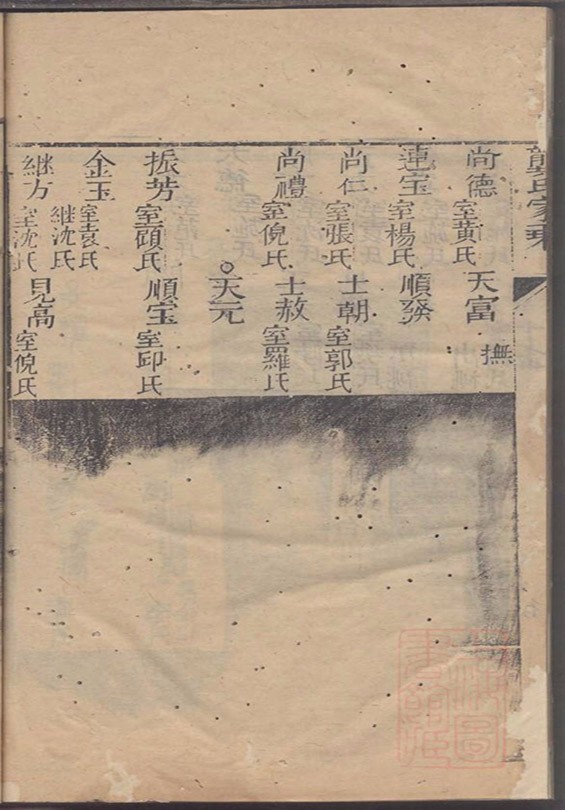 氏家乘
尚德 室黃氏 天富 撫
連宝 室楊氏 順發
尚仁 室張氏 士朝 室郭氏
尚禮 室倪氏 士赦 室羅氏
○天元
振芳 室顧氏 順宝 室邱氏
金玉 室袁氏 継沈氏
継方 室沈氏 見高 室倪氏